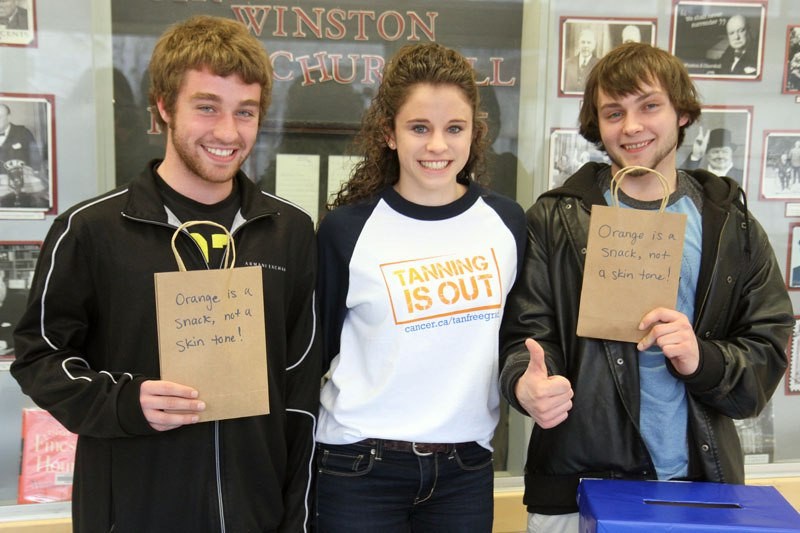 WINSTON
CHURCHILL
ARMANI EXCHANGE
Orange is a
snack, not a
skin tone!
TANNING
IS OUT
cancer.ca/tanfreegrad
Orange is a
snack, not
a skin tone!